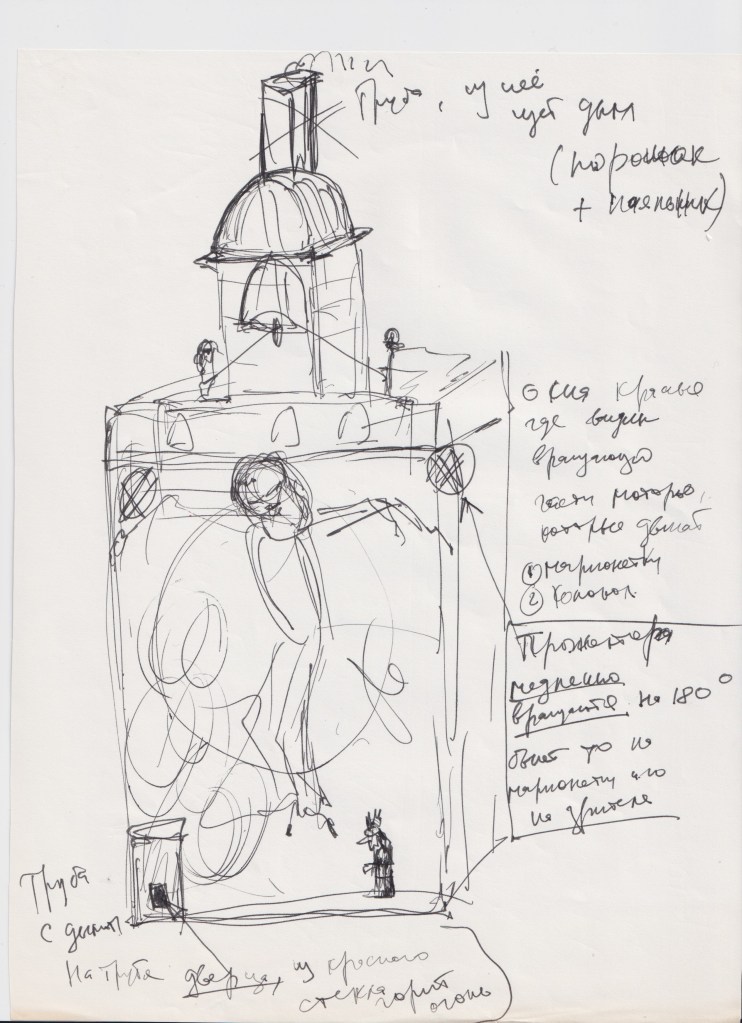 Труба, из неё
идёт дым
(порошок
+ паяльник)
где видны
части моторов,
которые движат
① марионетку
② колокол
Прожектора
медленно
вращаются на 180°
то на
марионетку
на зрителя
Труба
с дымом
На трубе дверца, из красного
стекла горит
огонь